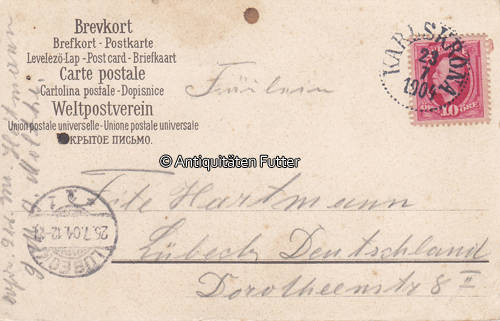 Brevkort
Brefkort - Postkarte
Levelezö-Lap - Post card - Briefkaart
Carte postale
Cartolina postale - Dopisnice
Weltpostverein
Union postale universelle - Unione postale universale
ОТКРЫТОЕ ПИСЬМО.
KARLSKRONA
23
7
1904
10 ÖRE
Fräulein
© Antiquitäten Futter
Frite Hartmann
Lübeck Deutschland
Dorotheenstr 8 II
LÜBECK
25.7.04.12-1
1